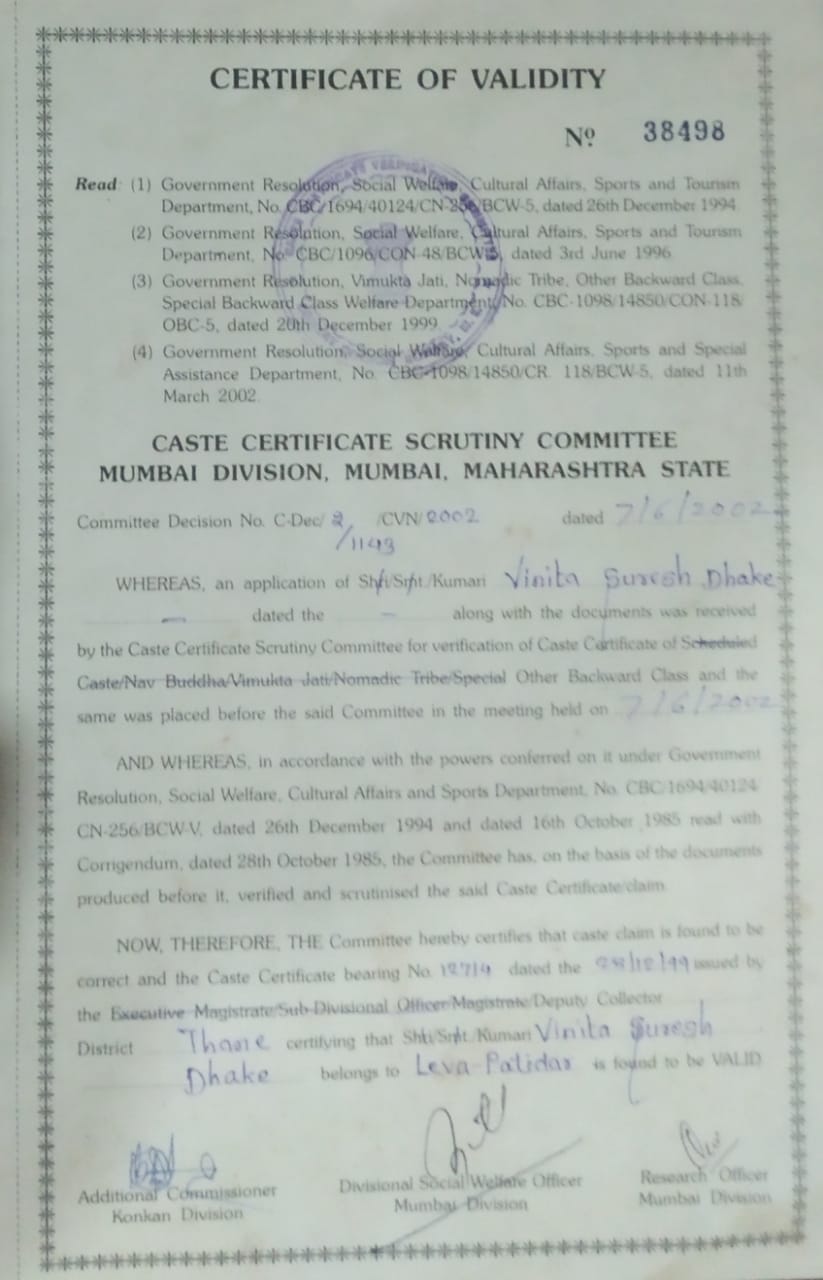 CERTIFICATE OF VALIDITY
Nº 38498
Read: (1) Government Resolution, Social Welfare, Cultural Affairs, Sports and Tourism
Department, No. CBC/1694/40124/CN-256/BCW-5, dated 26th December 1994
(2) Government Resolution, Social Welfare, Cultural Affairs, Sports and Tourism
Department, No. CBC/1096/CON-48/BCW-5, dated 3rd June 1996
(3) Government Resolution, Vimukta Jati, Nomadic Tribe, Other Backward Class,
Special Backward Class Welfare Department, No. CBC-1098/14850/CON-118/
OBC-5, dated 20th December 1999.
(4) Government Resolution, Social Welfare, Cultural Affairs, Sports and Special
Assistance Department, No. CBC-1098/14850/CR. 118/BCW-5, dated 11th
March 2002.
CASTE CERTIFICATE SCRUTINY COMMITTEE
MUMBAI DIVISION, MUMBAI, MAHARASHTRA STATE
Committee Decision No. C-Dec/ 2 /CVN/ 2002 dated 7/6/2002
/1143
WHEREAS, an application of Shri/Smt./Kumari Vinita Suresh Dhake
— dated the — along with the documents was received
by the Caste Certificate Scrutiny Committee for verification of Caste Certificate of Scheduled
Caste/Nav Buddha/Vimukta Jati/Nomadic Tribe/Special Other Backward Class and the
same was placed before the said Committee in the meeting held on 7/6/2002
AND WHEREAS, in accordance with the powers conferred on it under Government
Resolution, Social Welfare, Cultural Affairs and Sports Department, No. CBC/1694/40124/
CN-256/BCW-V, dated 26th December 1994 and dated 16th October 1985 read with
Corrigendum, dated 28th October 1985, the Committee has, on the basis of the documents
produced before it, verified and scrutinised the said Caste Certificate/claim.
NOW, THEREFORE, THE Committee hereby certifies that caste claim is found to be
correct and the Caste Certificate bearing No. dated the issued by
the Executive Magistrate/Sub-Divisional Officer/Magistrate/Deputy Collector
District Thane certifying that Shri/Smt./Kumari Vinita Suresh
Dhake belongs to Leva-Patidar is found to be VALID
Additional Commissioner
Konkan Division
Divisional Social Welfare Officer
Mumbai Division
Research Officer
Mumbai Division